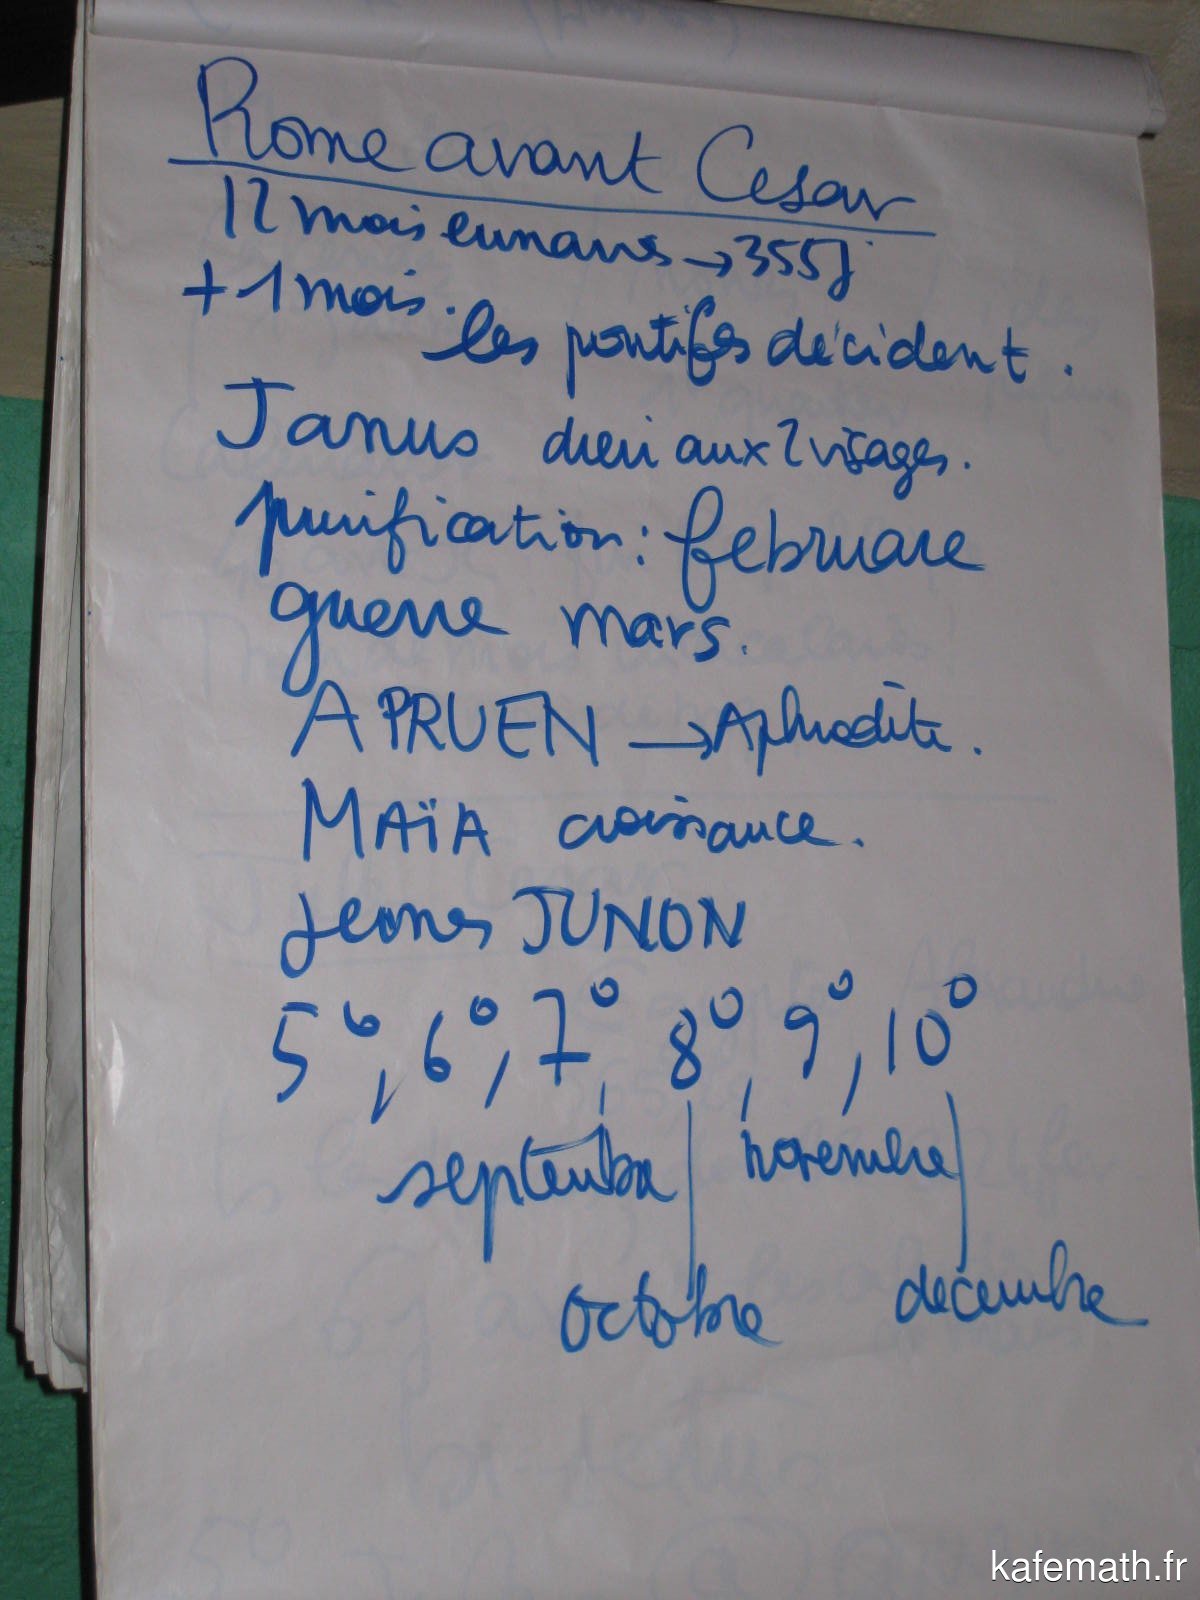 Rome avant Cesar
12 mois lunaires → 355j
+ 1 mois. les pontifes décident.
Janus dieu aux 2 visages.
purification: februare
guerre mars.
APRUEN → Aphrodite.
MAÏA croissance.
jeunes JUNON
5°, 6°, 7°, 8°, 9°, 10°
septembre novembre
octobre decembre
kafemath.fr